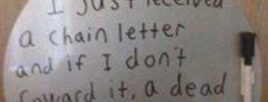 I just received
a chain letter
and if I don't
forward it, a dead